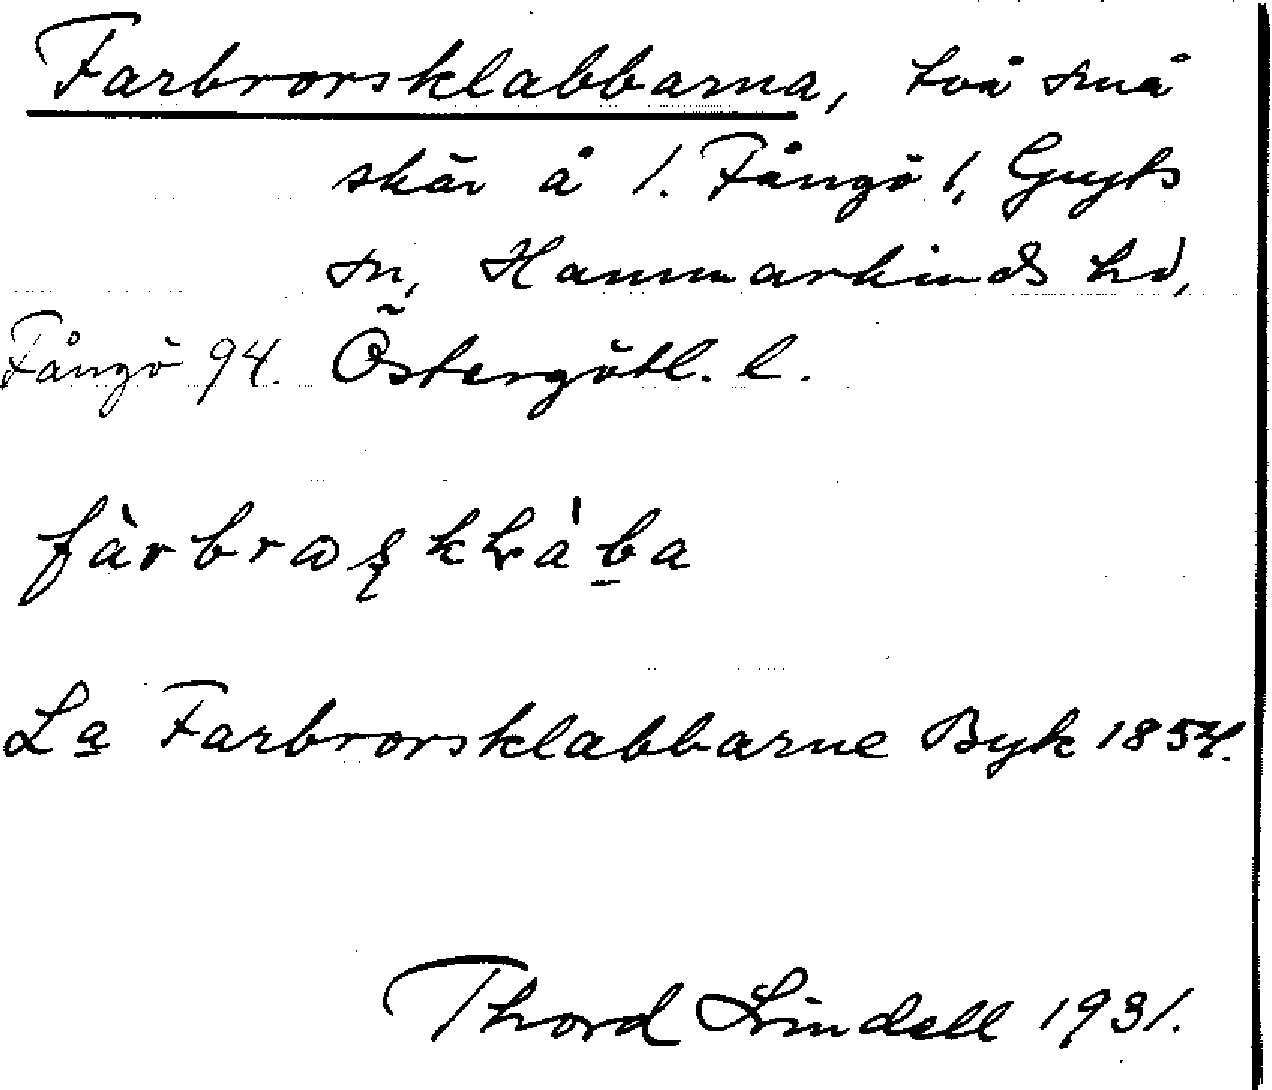 Farbrorsklabbarna, två små
skär å 1. Fångö 1, Gryts
sn, Hammarkinds hd,
Fångö 94. Östergötl. l.
La Farbrorsklabbarne Byk 1854.
Thord Lindell 1931.